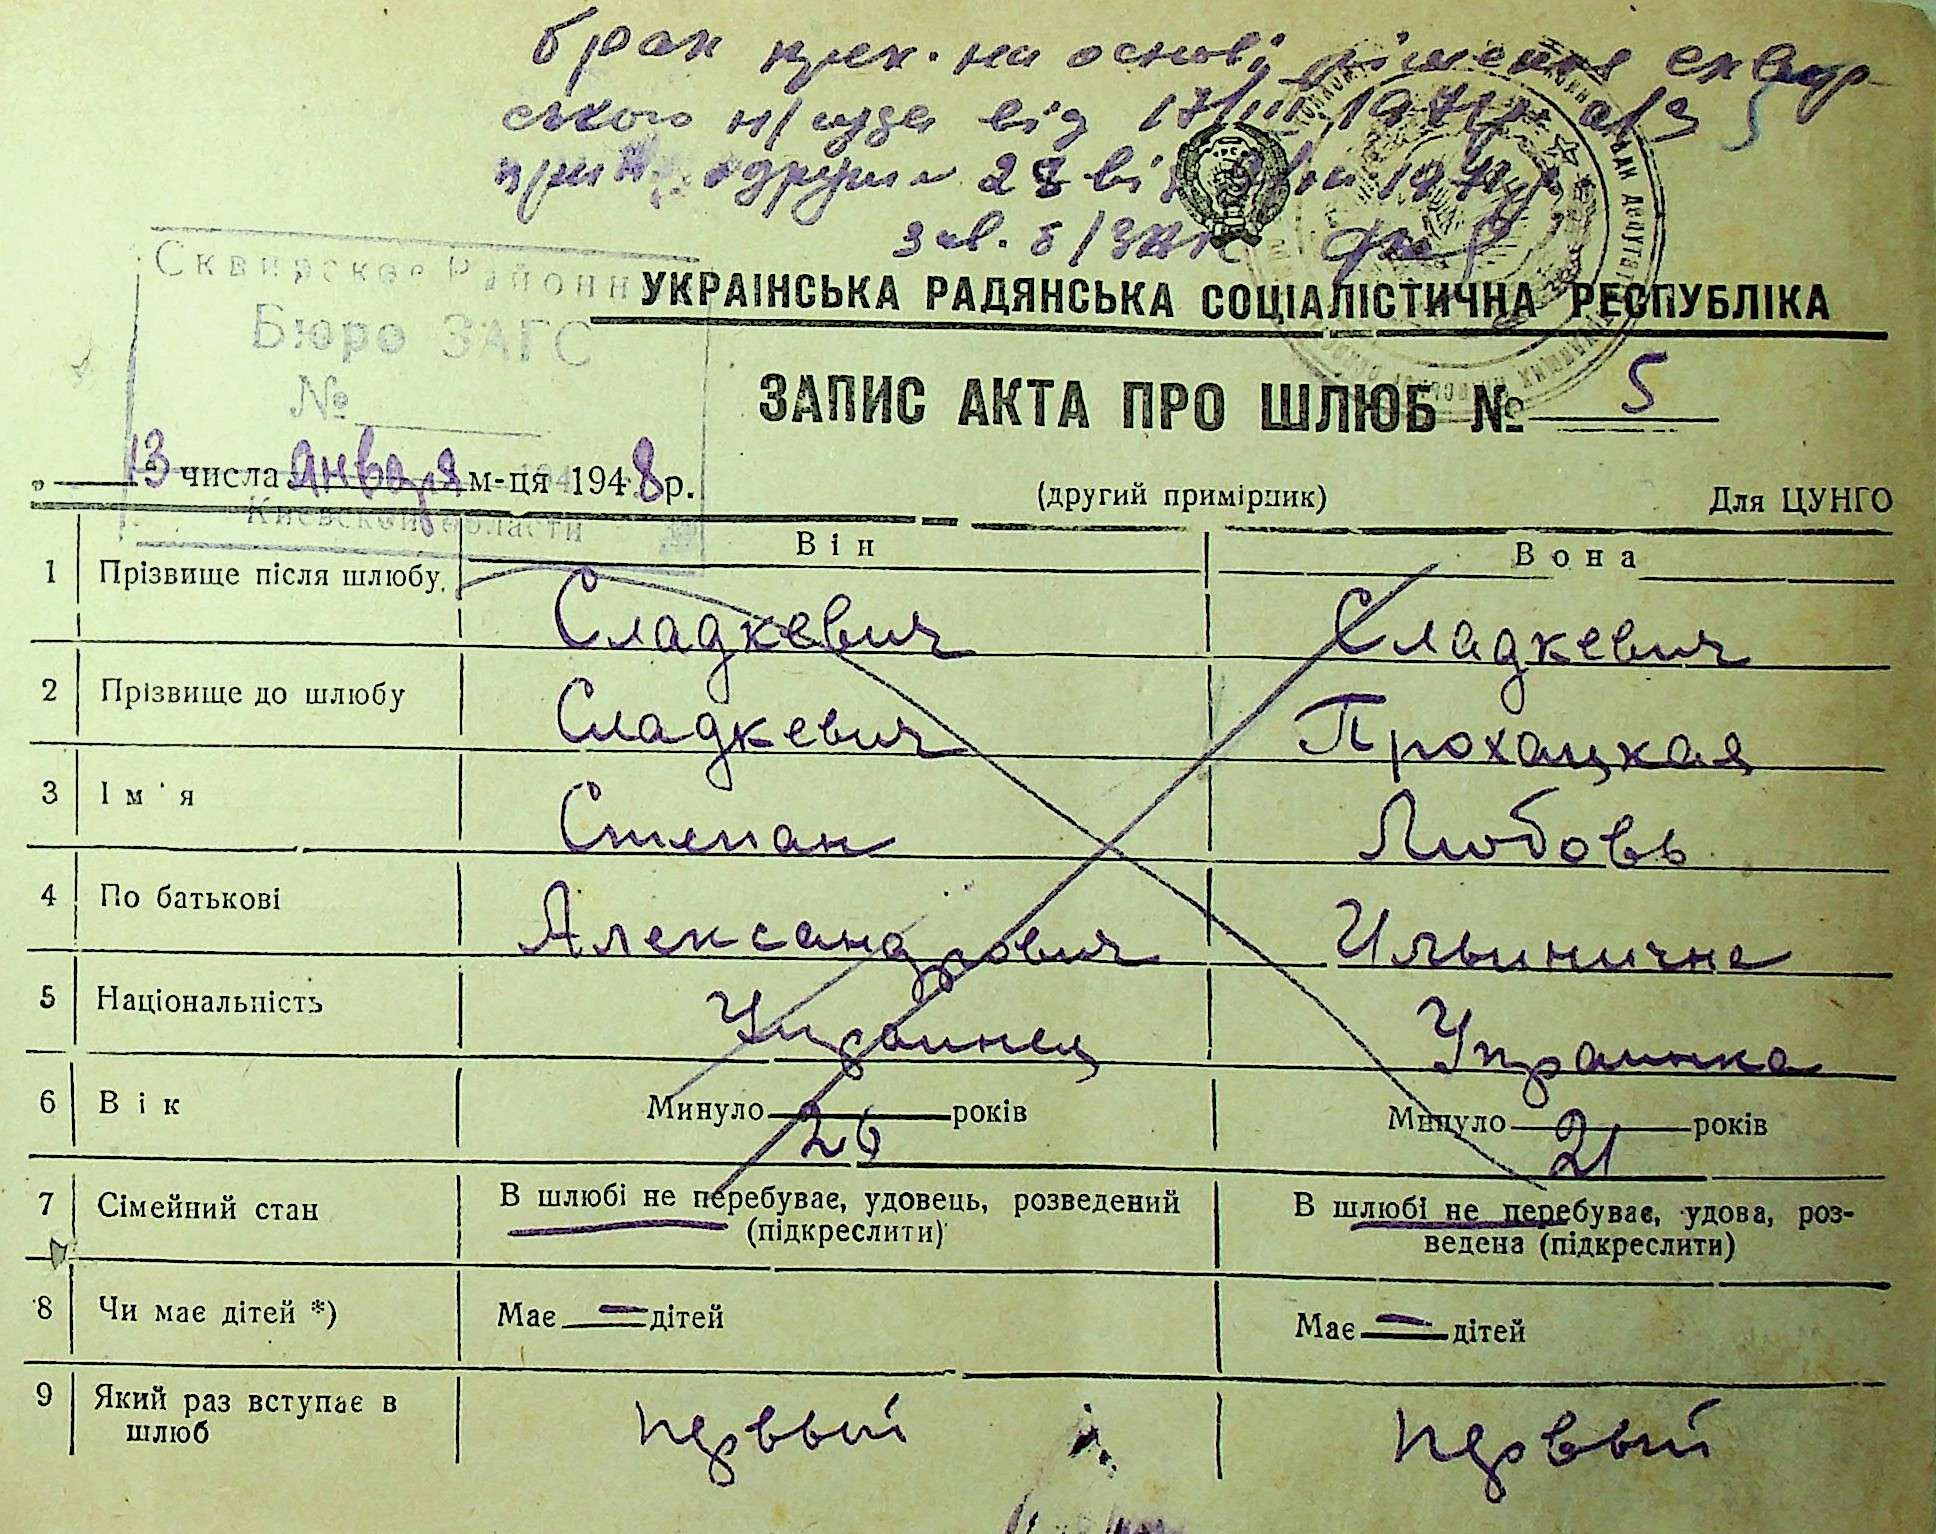 брак прек. на основі рішення сквир-
ського н/суда від 17/III 1971р. а/з
про 23 від 1971
зав. б/ЗАГС
Сквирское Районн
Бюро ЗАГС
№
Киевской области
УКРАЇНСЬКА РАДЯНСЬКА СОЦІАЛІСТИЧНА РЕСПУБЛІКА
ЗАПИС АКТА ПРО ШЛЮБ № 5
„ 13 числа января м-ця 1948 р.
(другий примірник) Для ЦУНГО
Він Вона
1 Прізвище після шлюбу. Сладкевич Сладкевич
2 Прізвище до шлюбу Сладкевич Прохацкая
3 Ім'я Степан Любовь
4 По батькові Александрович Ильинична
5 Національність Украинец Украинка
6 Вік Минуло 26 років Минуло 21 років
7 Сімейний стан В шлюбі не перебуває, удовець, розведений В шлюбі не перебуває, удова, роз-
(підкреслити) ведена (підкреслити)
8 Чи має дітей *) Має — дітей Має — дітей
9 Який раз вступає в первый первый
шлюб